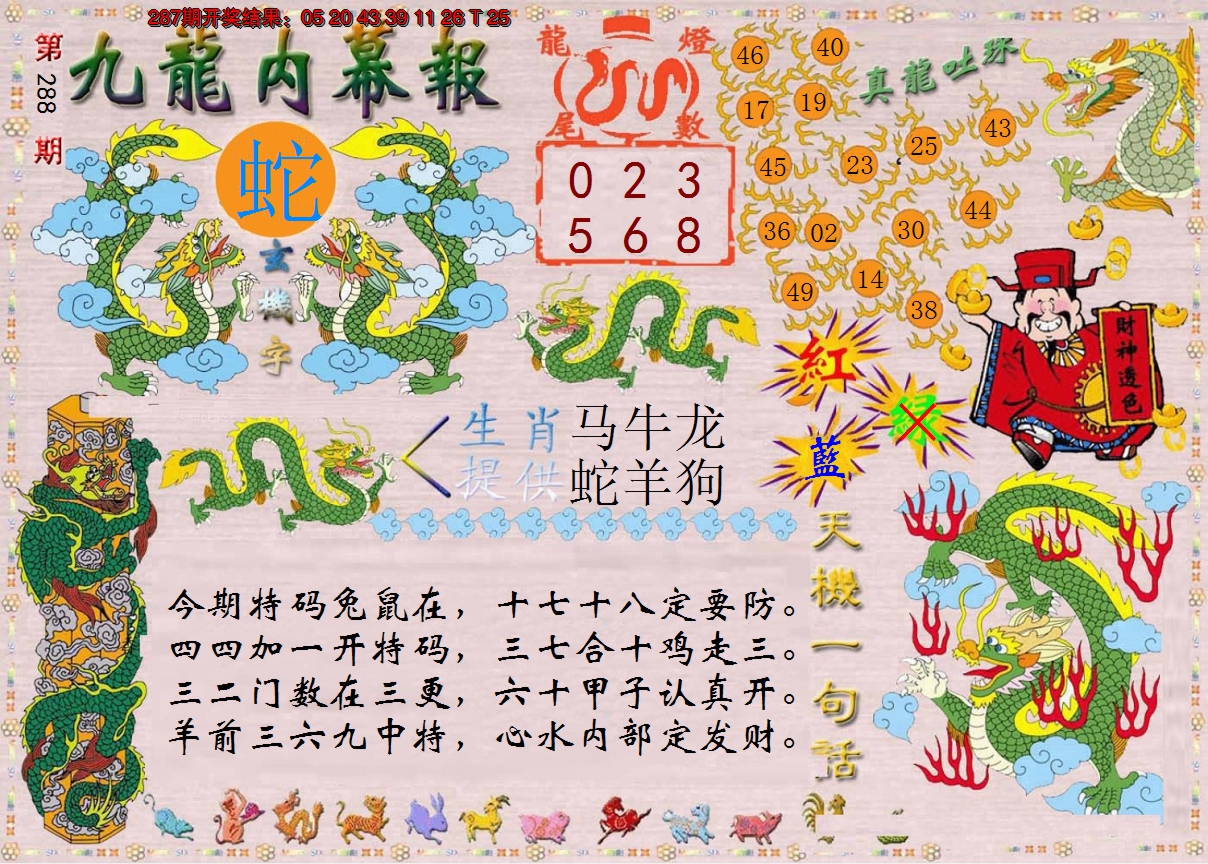 287期开奖结果：05 20 43 39 11 26 T 25
第288期
九龍内幕報
蛇
玄機字
龍燈
尾數
0 2 3
5 6 8
真龍吐珠
46 40
17 19
45 23 25 43
36 02 30 44
49 14 38
紅
绿
藍
財神透色
生肖提供
马牛龙
蛇羊狗
天機一句話
今期特码兔鼠在，十七十八定要防。
四四加一开特码，三七合十鸡走三。
三二门数在三更，六十甲子认真开。
羊前三六九中特，心水内部定发财。